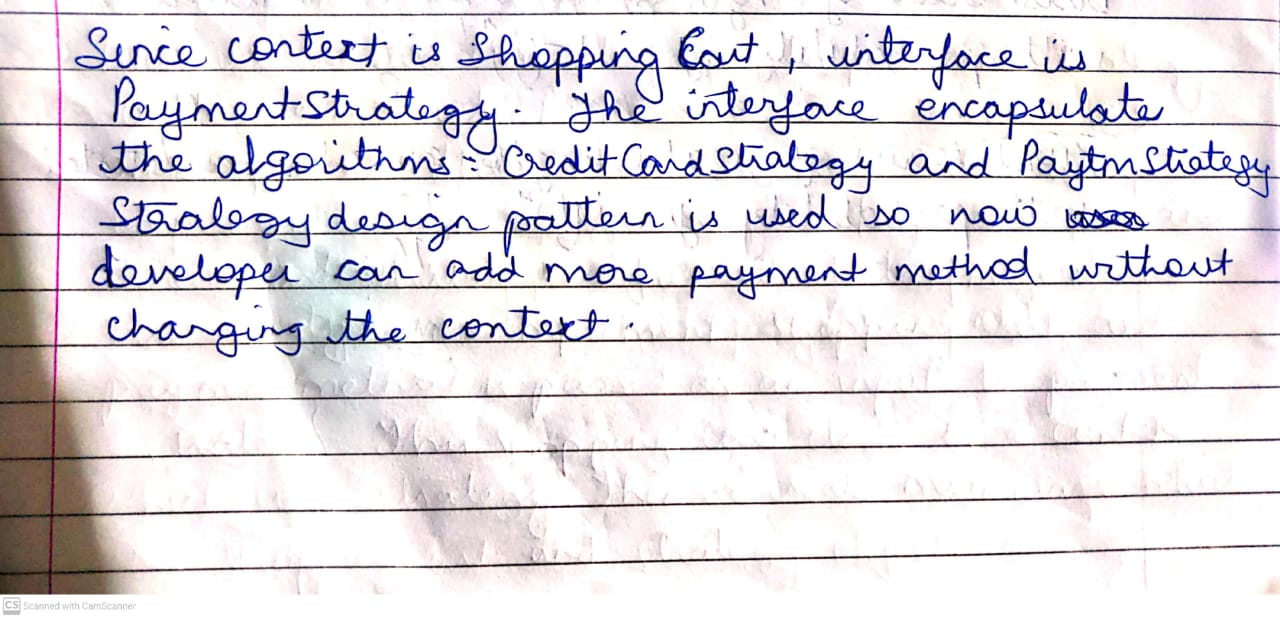 Since context is Shopping Cart, interface is
PaymentStrategy. The interface encapsulate
the algorithms:- CreditCardStrategy and PaytmStrategy
Strategy design pattern is used so now
developer can add more payment method without
changing the context.
CS Scanned with CamScanner